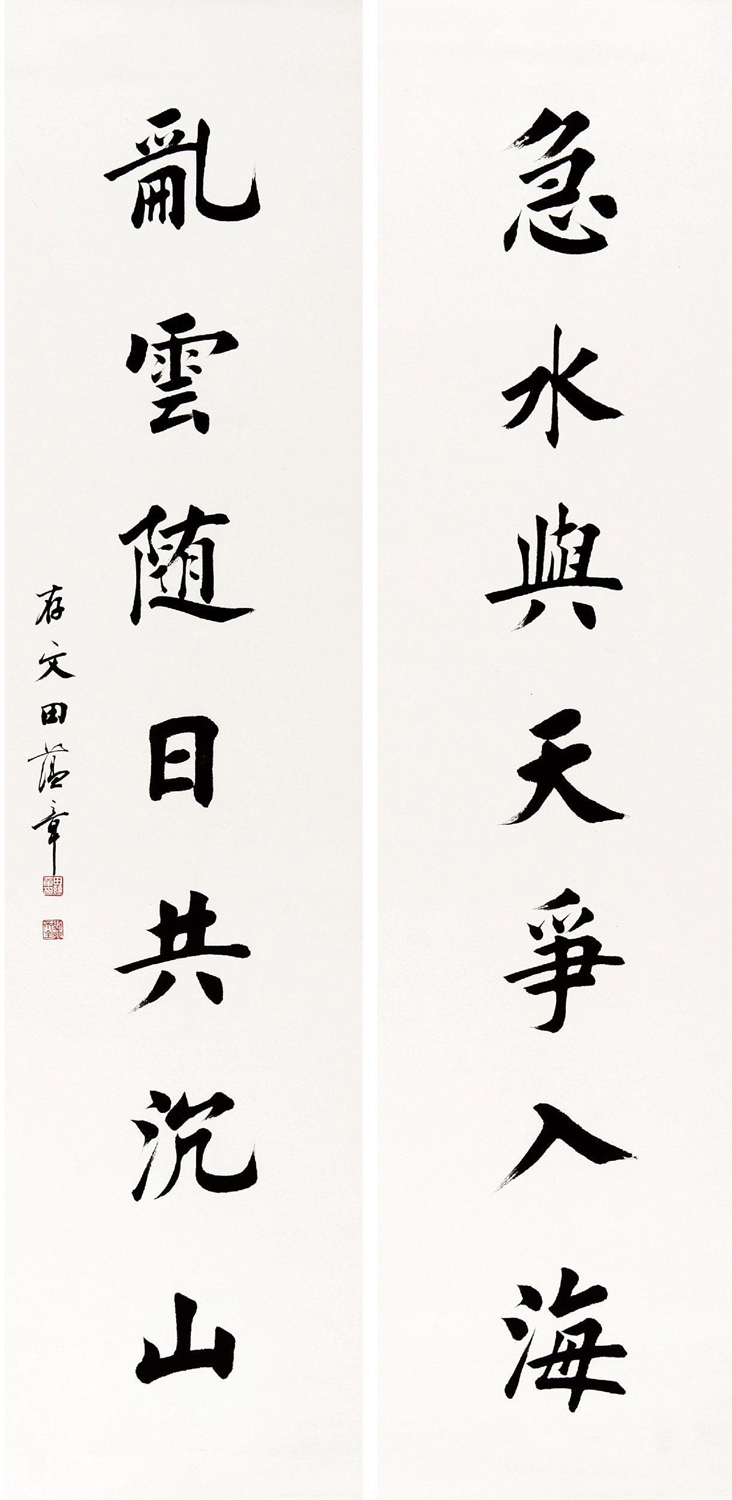 急水與天爭入海
亂雲随日共沉山
存文田蕴章